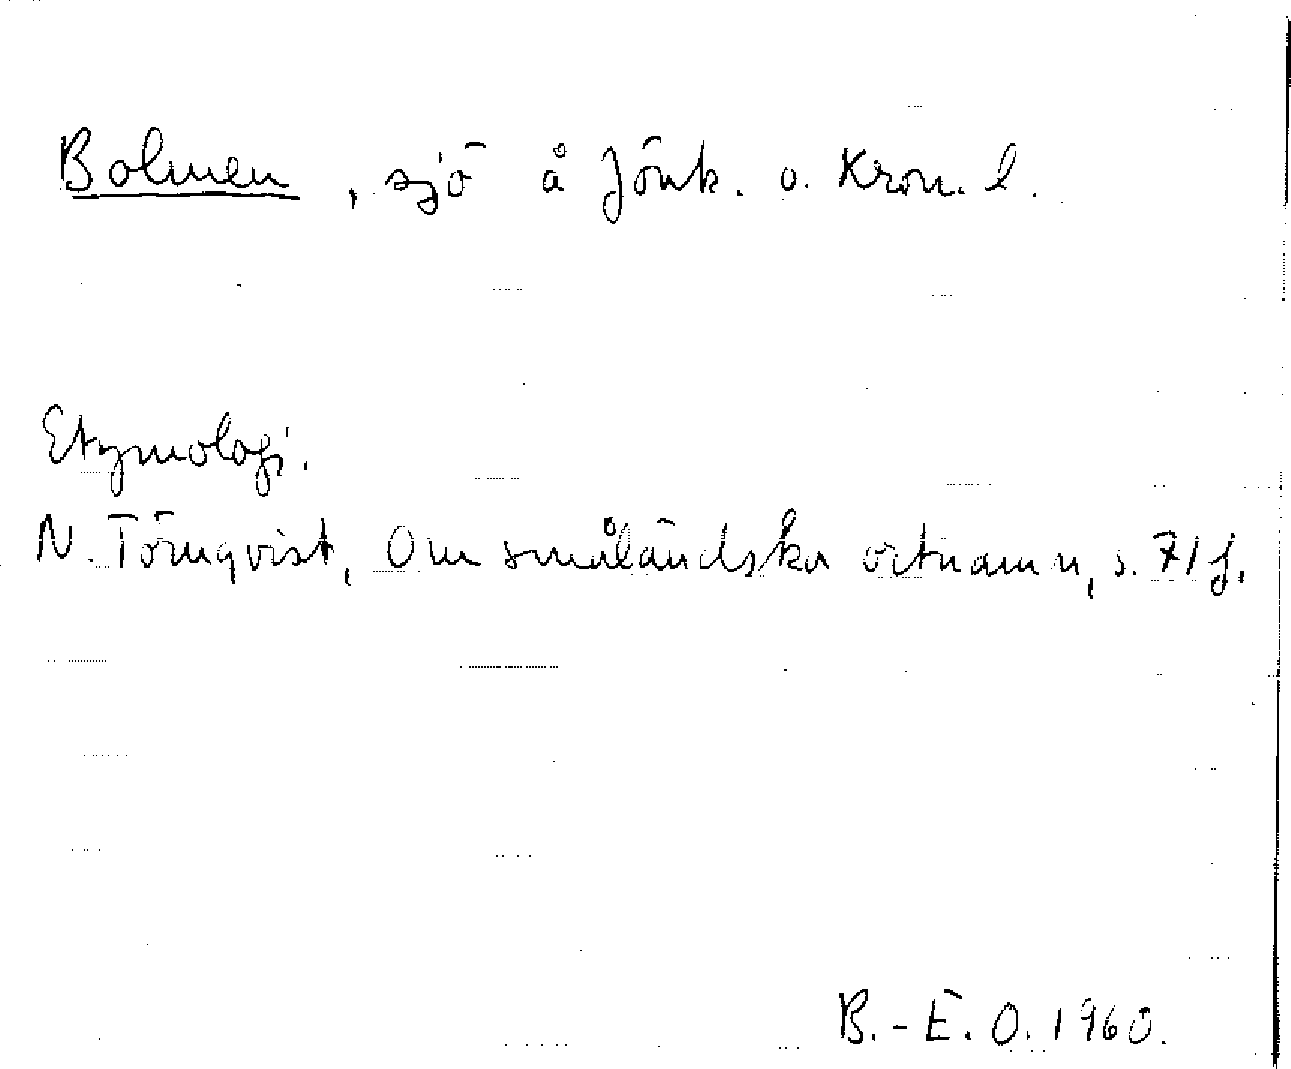 Bolmen, sjö å Jönk. o. Kron. l.
Etymologi.
N. Törnqvist, Om småländska ortnamn, s. 71 f.
B.-E. O. 1960.